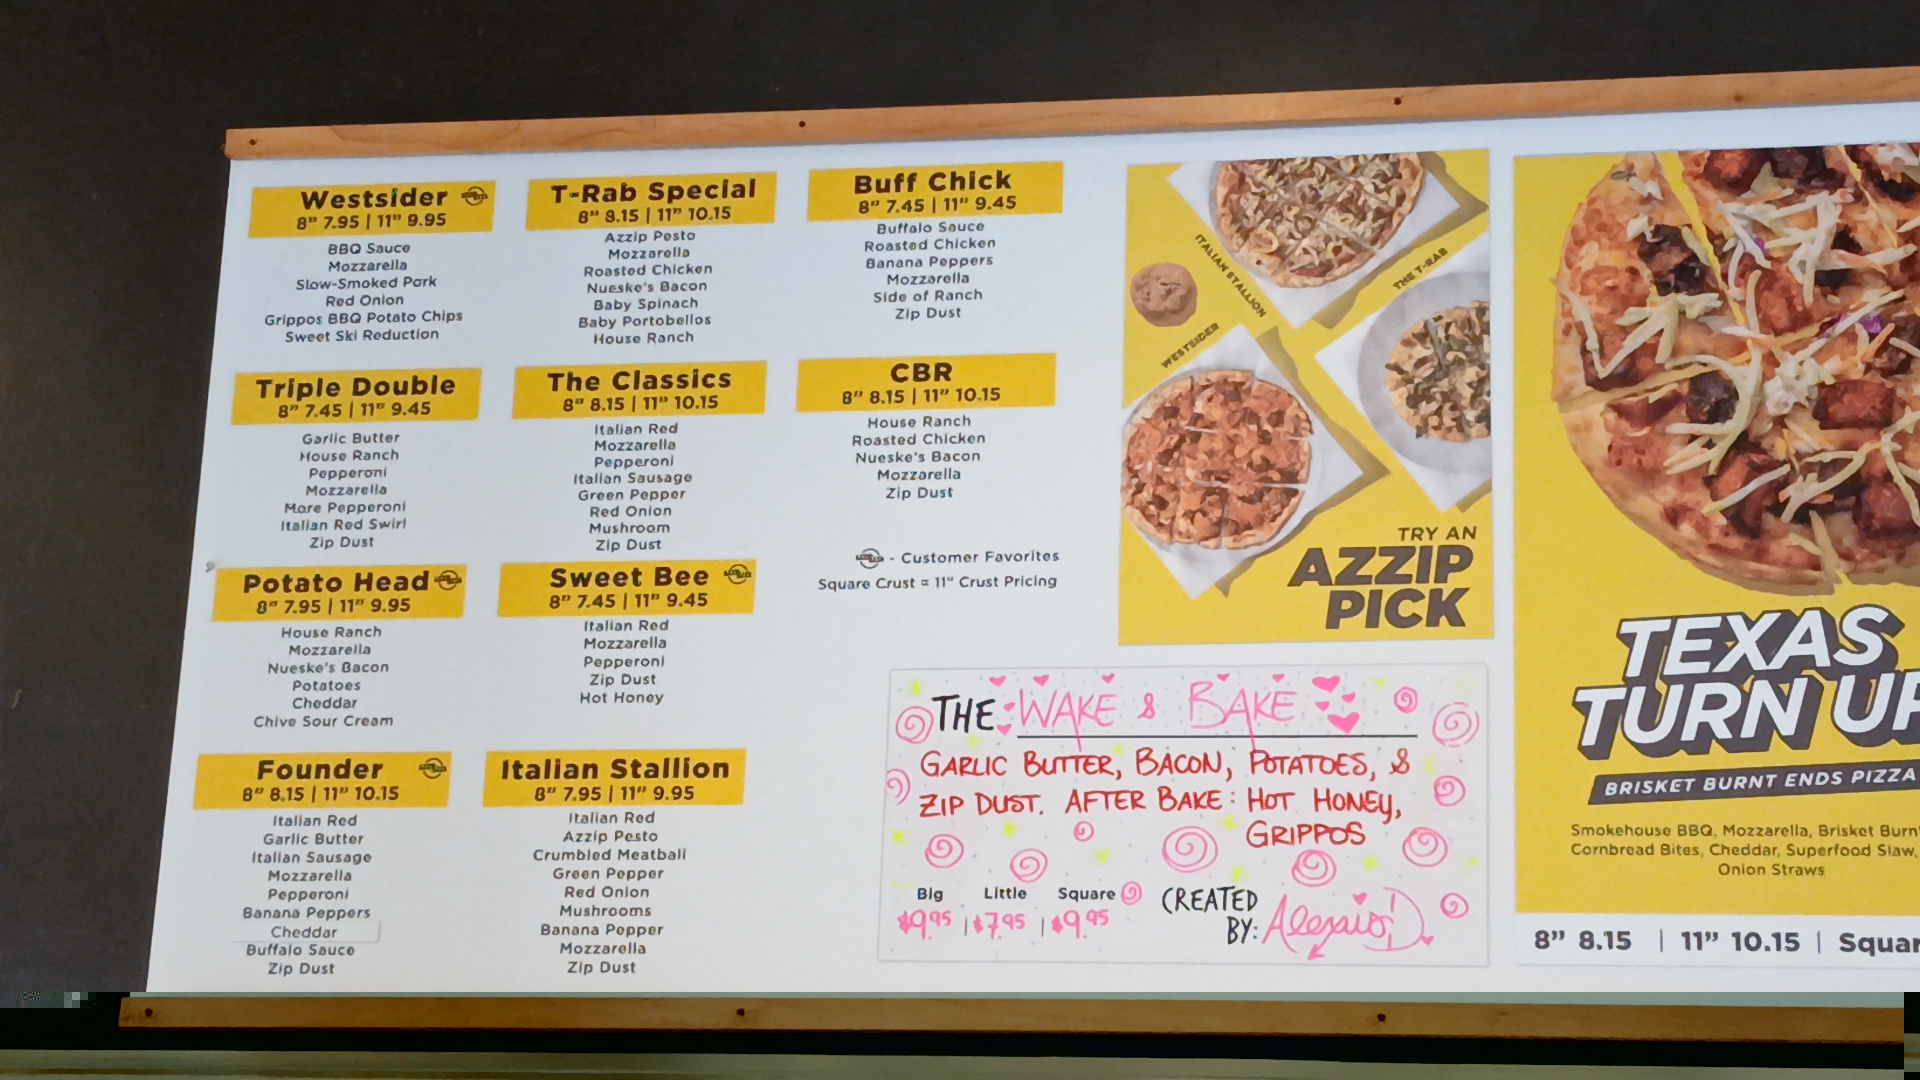 Westsider
8" 7.95 | 11" 9.95
BBQ Sauce
Mozzarella
Slow-Smoked Pork
Red Onion
Grippos BBQ Potato Chips
Sweet Ski Reduction
T-Rab Special
8" 8.15 | 11" 10.15
Azzip Pesto
Mozzarella
Roasted Chicken
Nueske's Bacon
Baby Spinach
Baby Portobellos
House Ranch
Buff Chick
8" 7.45 | 11" 9.45
Buffalo Sauce
Roasted Chicken
Banana Peppers
Mozzarella
Side of Ranch
Zip Dust
Triple Double
8" 7.45 | 11" 9.45
Garlic Butter
House Ranch
Pepperoni
Mozzarella
More Pepperoni
Italian Red Swirl
Zip Dust
The Classics
8" 8.15 | 11" 10.15
Italian Red
Mozzarella
Pepperoni
Italian Sausage
Green Pepper
Red Onion
Mushroom
Zip Dust
CBR
8" 8.15 | 11" 10.15
House Ranch
Roasted Chicken
Nueske's Bacon
Mozzarella
Zip Dust
- Customer Favorites
Square Crust = 11" Crust Pricing
Potato Head
8" 7.95 | 11" 9.95
House Ranch
Mozzarella
Nueske's Bacon
Potatoes
Cheddar
Chive Sour Cream
Sweet Bee
8" 7.45 | 11" 9.45
Italian Red
Mozzarella
Pepperoni
Zip Dust
Hot Honey
Founder
8" 8.15 | 11" 10.15
Italian Red
Garlic Butter
Italian Sausage
Mozzarella
Pepperoni
Banana Peppers
Cheddar
Buffalo Sauce
Zip Dust
Italian Stallion
8" 7.95 | 11" 9.95
Italian Red
Azzip Pesto
Crumbled Meatball
Green Pepper
Red Onion
Mushrooms
Banana Pepper
Mozzarella
Zip Dust
ITALIAN STALLION
THE T-RAB
WESTSIDER
TRY AN
AZZIP
PICK
THE WAKE & BAKE
GARLIC BUTTER, BACON, POTATOES, &
ZIP DUST. AFTER BAKE: HOT HONEY,
GRIPPOS
Big Little Square
$9.95 | $7.95 | $9.95
CREATED
BY: Alexis D
TEXAS
TURN UP
BRISKET BURNT ENDS PIZZA
Smokehouse BBQ, Mozzarella, Brisket Burn
Cornbread Bites, Cheddar, Superfood Slaw,
Onion Straws
8" 8.15 | 11" 10.15 | Squar